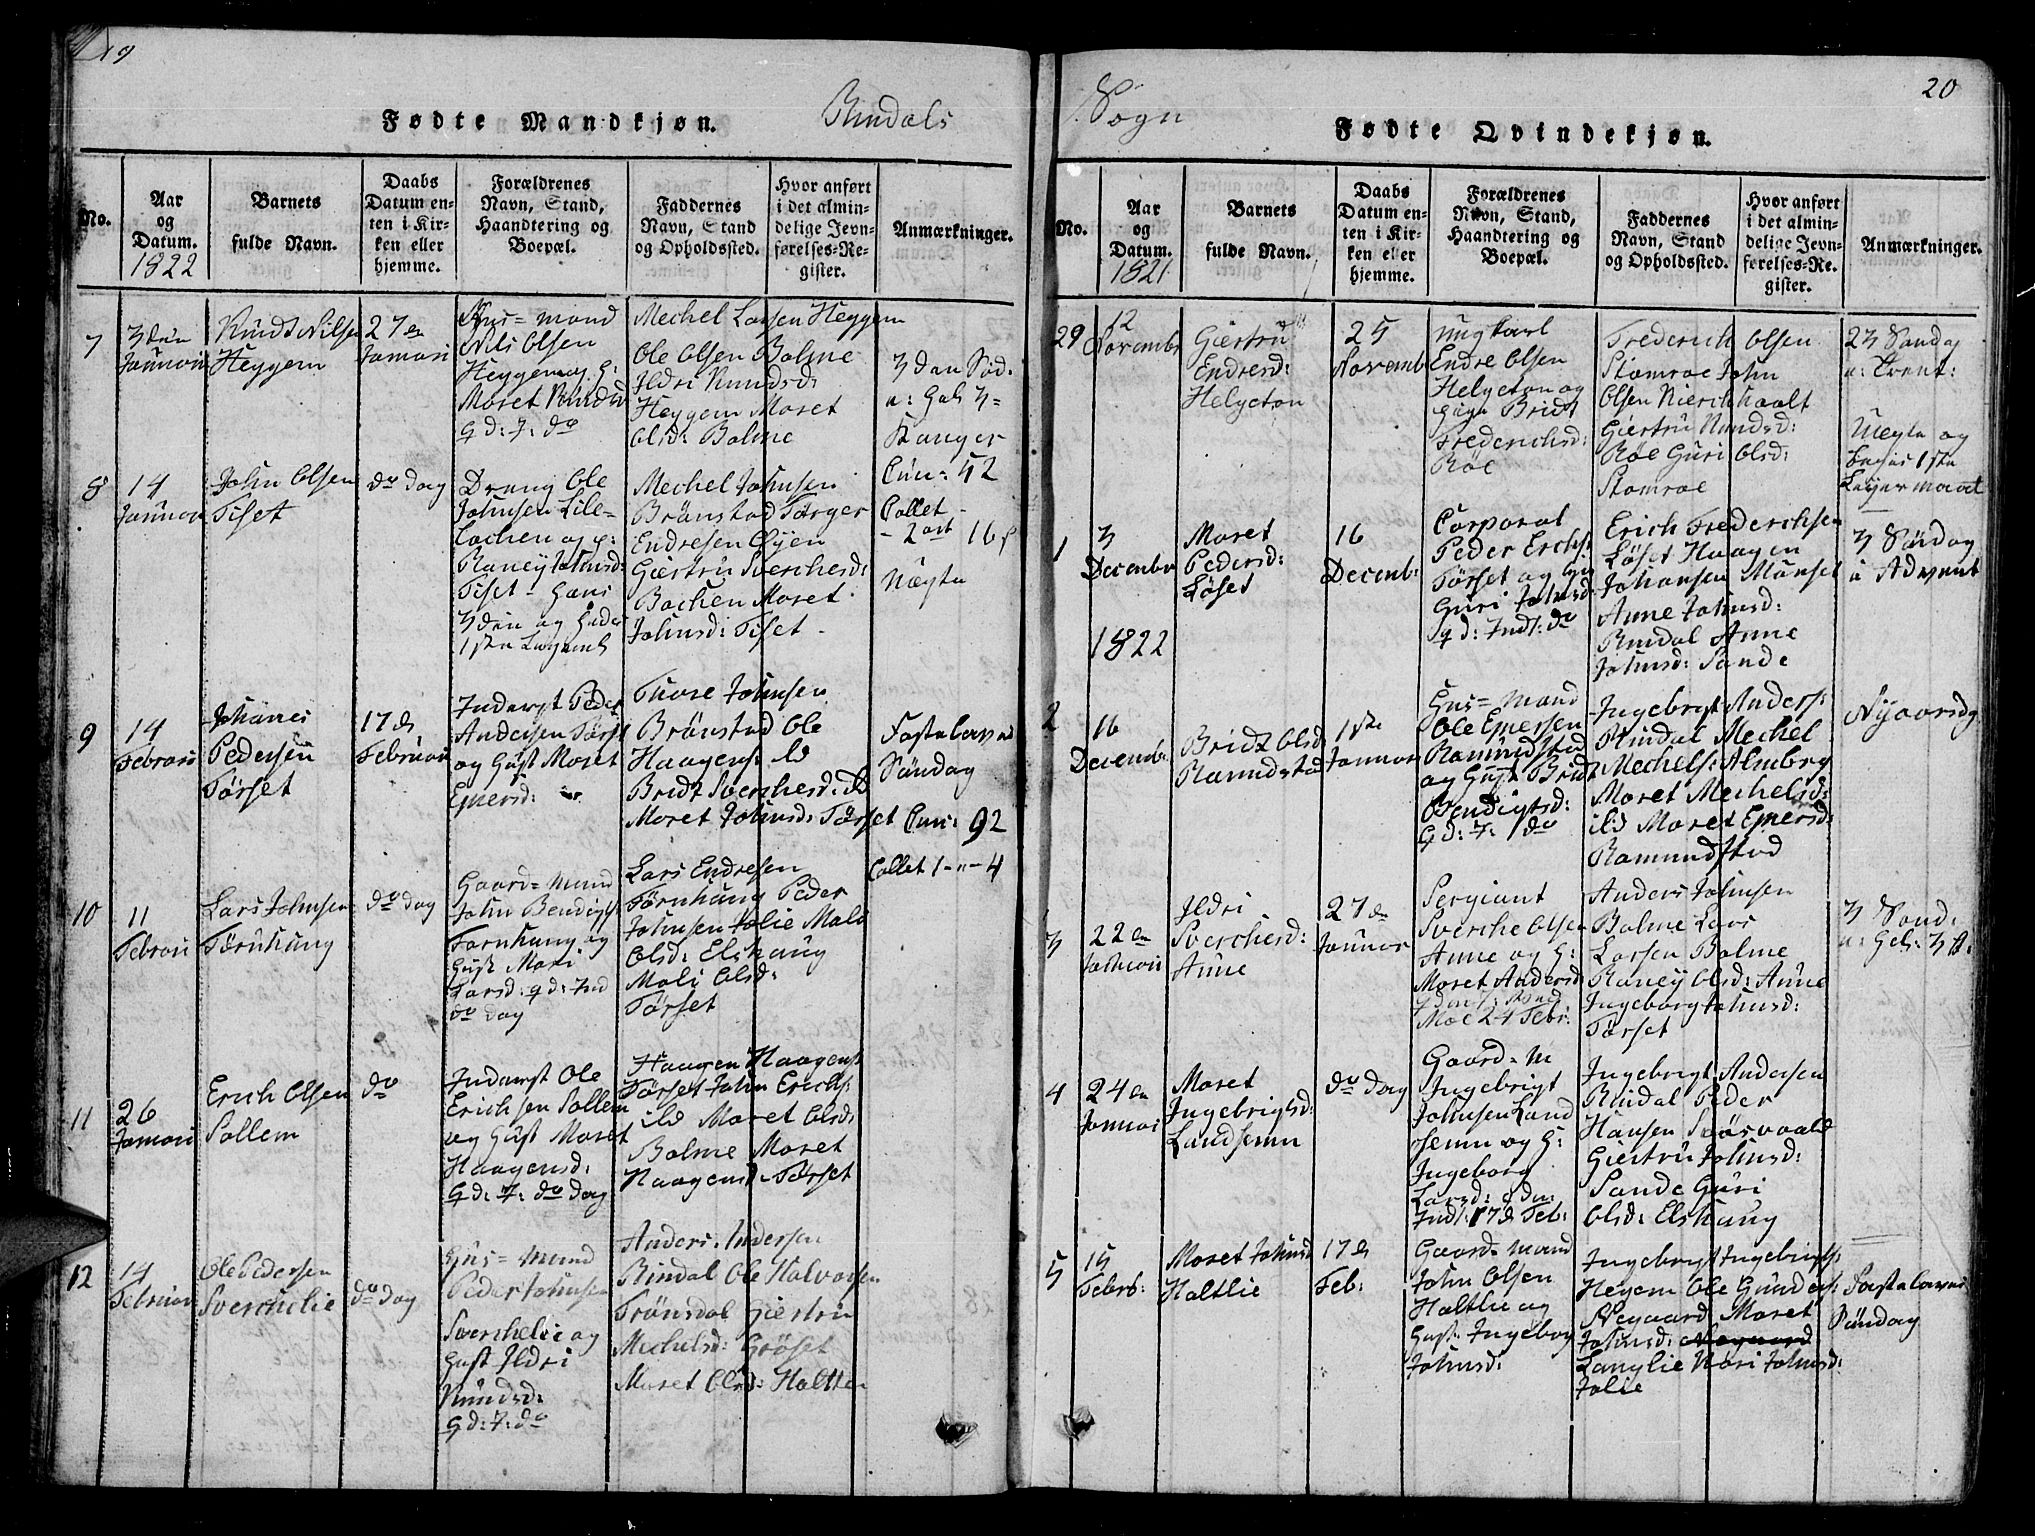 19
Fødte Mandkjøn.
Rindals
No.
Aar og Datum.
1822
Barnets fulde Navn.
Daabs Datum enten i Kirken eller hjemme.
Forældrenes Navn, Stand, Haandtering og Boepæl.
Faddernes Navn, Stand og Opholdssted.
Hvor anført i det almindelige Jevnførelses-Register.
Anmærkninger.
7
3den
Januari
Knudt Nilsen
Heggem
27en
Januari
Huus= mand
Nils Olsen
Heggem og H:
Moret Knudsd
G d: I: do
Mechel Larsen Heggem
Ole Olsen Bolme
Ildri Knudsd:
Heggem Moret
Olsd: Bolme
3dan Sød.
a: Hel: 3=
Konger
8
14
Januari
John Olsen
Tiset
do dag
Dreng Ole
Johnsen Lile=
bachen og P:
Raney Johnsd:
Tiset - Hans
3den og Hendes
1ste Leyerm
Mechel Johnsen
Brønstad Torger
Endresen Øyen
Giertru Sverchesd:
Bachen Moret
Johnsd: Tiset
Cum: 52
Collet
- 2 ort 16 s
Uægte
9
14
Februari
Johanes
Pedersen
Tørset
17de
Februari
Inderst Peder
Andersen Tørset
og Hust Moret
Ejnersd:
Thore Johnsen
Brønstad Ole
Haagens: ib
Bridt Sverchesd: ib
Moret Johnsd: Tørset
Fastelavns
Søndag
Cum: 92
Collet 1 - " - 4
10
11
Februari
Lars Johnsen
Tørnhaug
do dag
Gaard= Mand
John Bendigts
Tørnhaug og
Hust Mari
Larsd: g d: Ind
do dag
Lars Endresen
Tørnhaug Peder
Johnsen Jølie Mali
Olsd: Elshaug
Mali Olsd:
Tørset
11
26
Januari
Erich Olsen
Sollem
do
Inderst Ole
Erichsen Sollem
og Hust Moret
Haagensd:
G d: I: do dag
Haagen Haagens:
Tørset John Erichs:
ibd Moret Olsd:
Bolme Moret
Haagensd Tørset
12
14
Februari
Ole Pedersen
Sverchelie
do dag
Huus= Mand
Peder Johnsen
Sverchelie og
Hust Ildri
Knudsd:
G d: I: do
Anders Andersen
Rindal Ole Halvorsen
Trønsdal Giertru
Mechelsd: Grøset
Moret Olsd: Holtten
Sogn
20
Fødte Qvindekjøn.
No.
Aar og Datum.
1821
Barnets fulde Navn.
Daabs Datum enten i Kirken eller hjemme.
Forældrenes Navn, Stand, Haandtering og Boepæl.
Faddernes Navn, Stand og Opholdssted.
Hvor anført i det almindelige Jevnførelses-Register.
Anmærkninger.
29
12
Novembr
Giertru
Endresd:
Helgeton
25
Novemb
Ungkarl
Endre Olsen
Helgeton og
Pige Bridt
Frederichsd:
Røe
Frederich Olsen
Stomroe John
Olsen Nierschaalt
Giertru Knudsd:
Røe Guri Olsd:
Stomroe
23 Søndag
a: Trenit:
Uægte og
begges 1ste
Leyermaal
1
3
Decembr
Moret
Pedersd:
Løset
16
Decemb:
Corporal
Peder Erichs:
Tørset og
Guri Johnsd:
g d: Ind: do
Erich Frederichsen
Løset Haagen
Johansen Monset
Anne Johnsd:
Rindal Anne
Johnsd: Sande
3 Søndag
i Advent
1822
2
16
Decemb:
Bridt Olsd:
Ramundstad
1ste
Januar
Huus= Mand
Ole Ejnersen
Ramundstad
og Hust Bridt
Bendigtsd:
G d: I: do
Ingebrigt Anders:
Rindal Mechel
Mechels: Almberg
Moret Mechelsd:
ibd Moret Ejnersd:
Ramundstad
Nyaarsdg
3
22en
Januari
Ildri
Sverchesd:
Aune
27de
Januar
Sergiant
Sverche Olsen
Aune og H:
Moret Andersd:
24 Febr:
Anders Johnsen
Bolme Lars
Larsen Bolme
Raney Olsd: Aune
Ingeborg Johnsd:
Tørset
3 Sønd:
a: Hel: 3 K:
4
24en
Januari
Moret
Ingebrigtsd:
Landsemm
do dag
Gaard= M
Ingebrigt
Johnsen Land
semm og H:
Ingeborg
Larsd: g den:
Ind: 17de Feb:
Ingebrigt Andersen
Rindal Peder
Hansen Sørsvaald
Giertru Johnsd:
Sande Guri
Olsd: Elshaug
5
15
Febr:
Moret Johnsd
Holtlie
17de
Feb:
Gaard= Mand
John Olsen
Holtlie og
Hust. Ingeborg
Johnsd:
Ingebrigt Ingebrigts:
Hegem Ole Gunders:
Negaard Moret
Johnsd: Negaard
Langlie Mari Johnsd:
Jølie
Fastelavns
Søndag